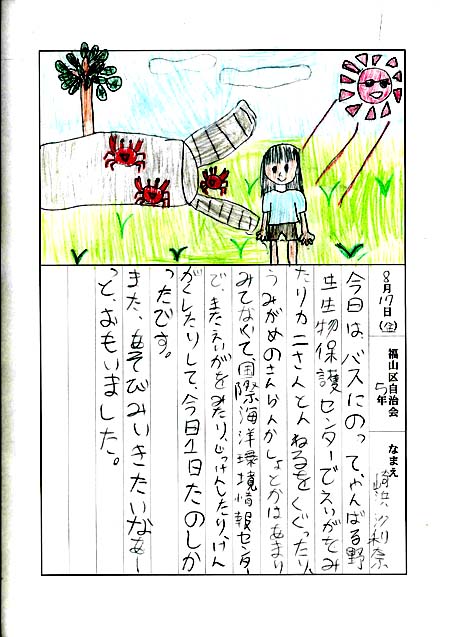 8月17日(金)
福山区自治会
5年
なまえ
崎浜 沙利奈
今日は、バスにのって、やんばる野
生生物保護センターでえいがをみ
たりカニさんとんねるをくぐったり、
うみがめのさんらんかしょとかはあまり
みてなくて、国際海洋環境情報センター
で、またえいがをみたり、じっけんしたり、けん
がくしたりして、今日1日たのしか
ったです。
また、あそびみいきたいなぁー
っと、おもいました。